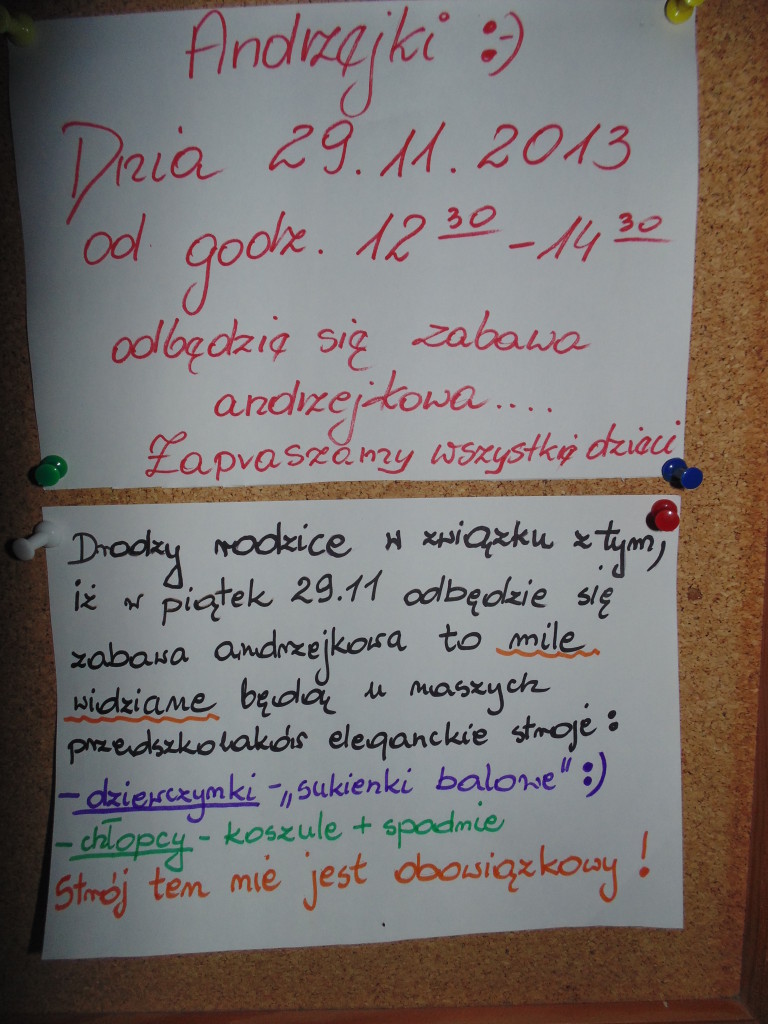 Andrzejki :-)
Dnia 29.11.2013
od godz. 12 30 - 14 30
odbędzie się zabawa
andrzejkowa....
Zapraszamy wszystkie dzieci
Drodzy rodzice w związku z tym,
iż w piątek 29.11 odbędzie się
zabawa andrzejkowa to mile
widziane będą u naszych
przedszkolaków eleganckie stroje:
- dziewczynki - „sukienki balowe" :)
- chłopcy - koszule + spodnie
Strój ten nie jest obowiązkowy!